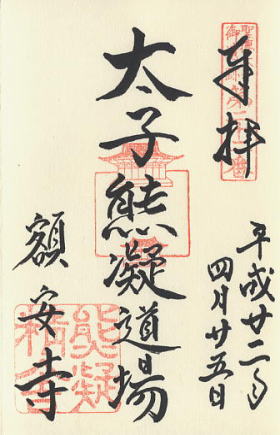 奉拝
平成廿二年
四月廿五日
太子熊凝道場
額安寺
熊凝精舎